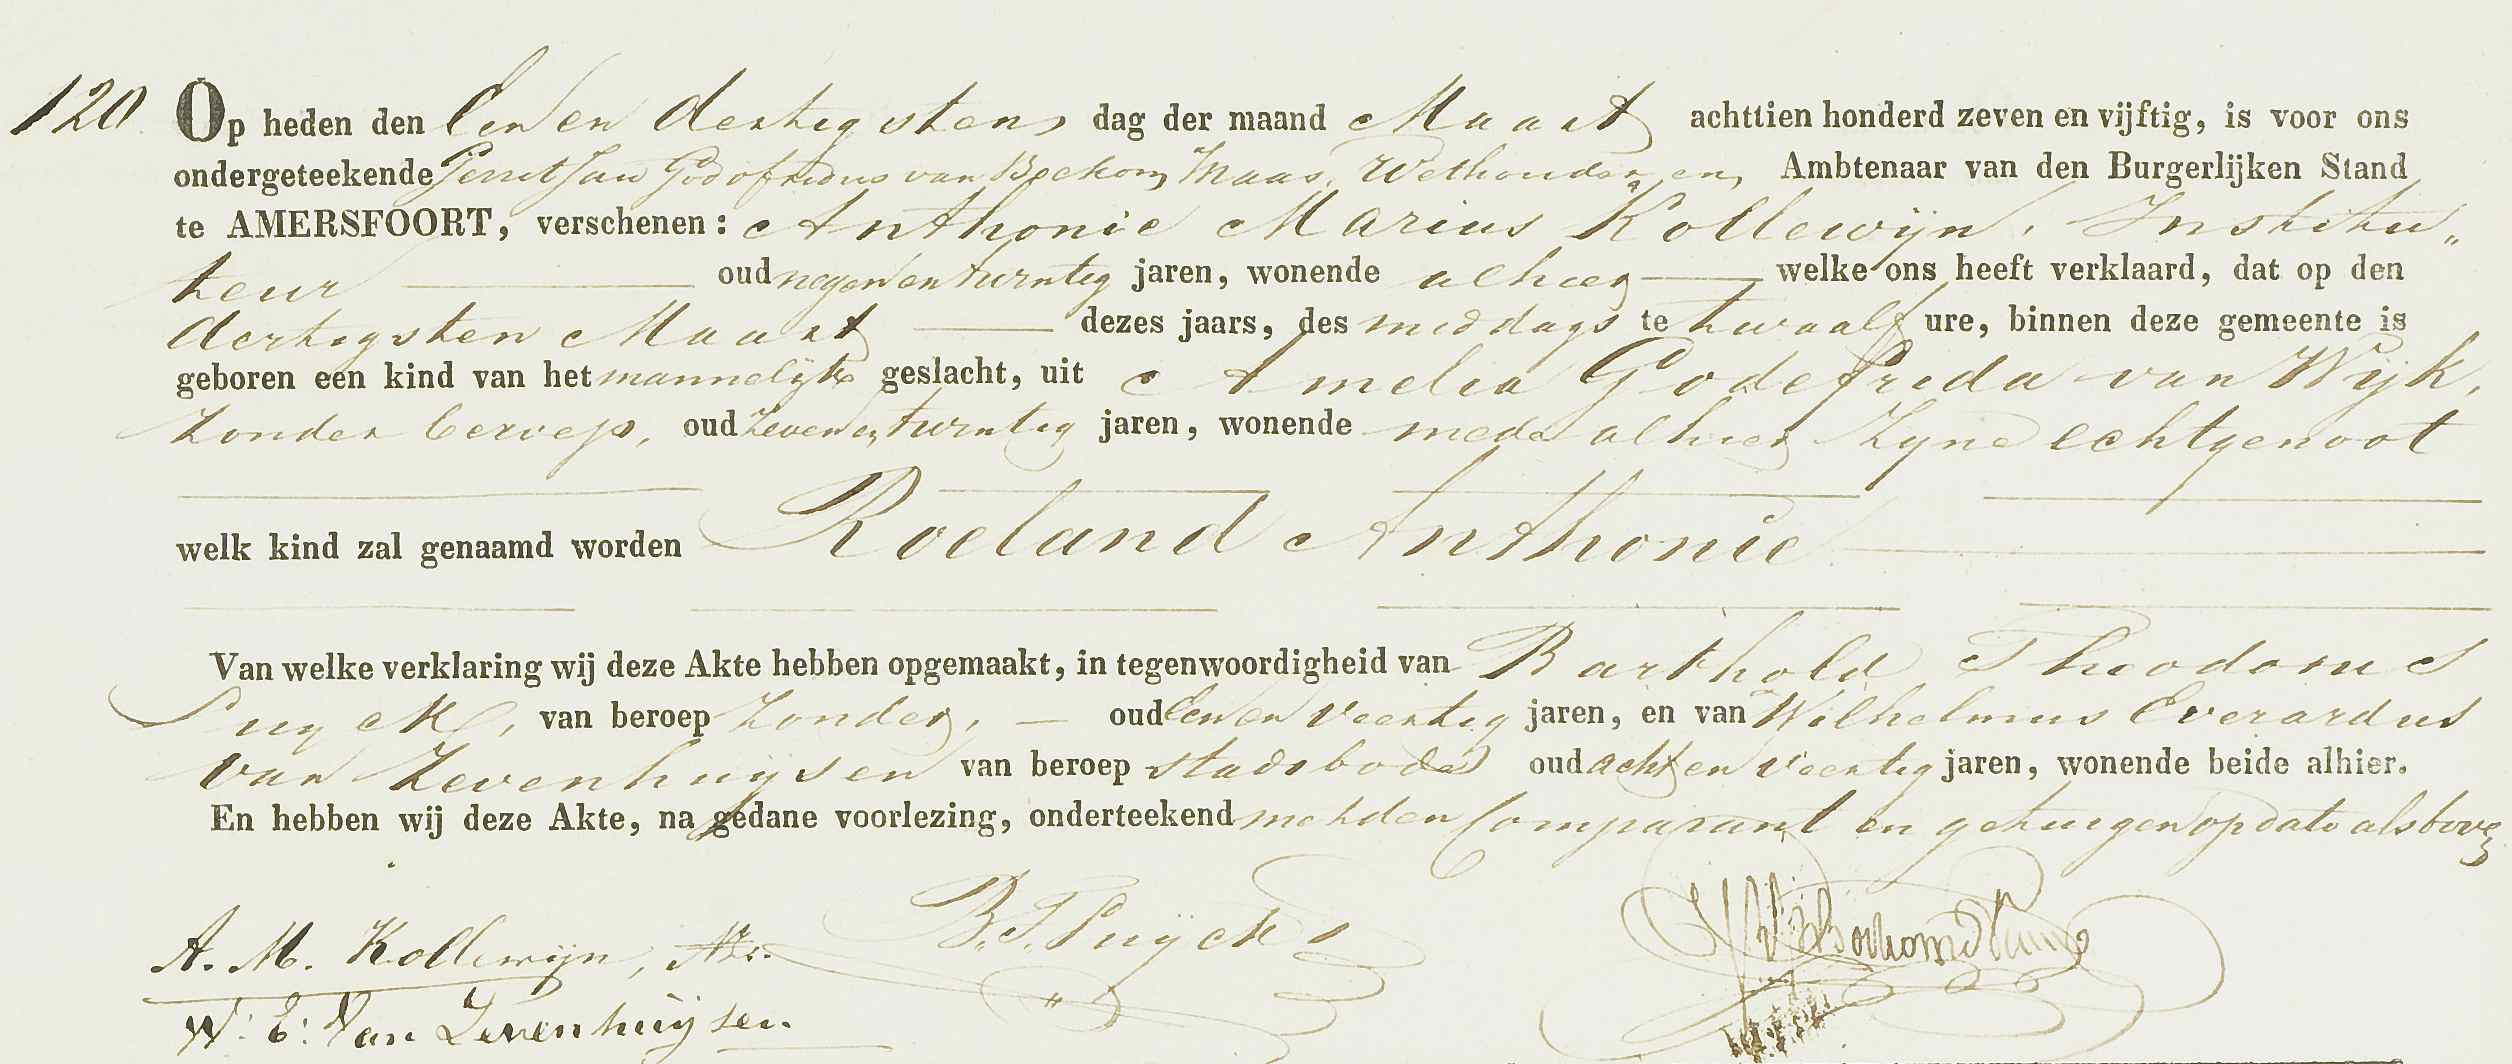 120 Op heden den Een en dertigsten dag der maand Maart achttien honderd zeven en vijftig, is voor ons
ondergeteekende Gerrit Jan Godofridus van Bochom Maas, Wethouder en Ambtenaar van den Burgerlijken Stand
te AMERSFOORT, verschenen: Anthonie Marius Kollewijn, Institu„
teur oud negen en twintig jaren, wonende alhier welke ons heeft verklaard, dat op den
dertigsten Maart dezes jaars, des middags te twaalf ure, binnen deze gemeente is
geboren een kind van het mannelijke geslacht, uit Amelia Godefrida van Wijk,
zonder beroep, oud zeven en twintig jaren, wonende mede alhier zijne echtgenoot
welk kind zal genaamd worden Roeland Anthonie
Van welke verklaring wij deze Akte hebben opgemaakt, in tegenwoordigheid van Barthold Theodorus
Puyck, van beroep zonder, oud Een en Veertig jaren, en van Wilhelmus Everardus
van Zevenhuijsen van beroep stadsbode oud acht en Veertig jaren, wonende beide alhier.
En hebben wij deze Akte, na gedane voorlezing, onderteekend met den Comparant en getuigen op dato als boven
A. M. Kollewijn, Nz. B. T. Puijck
W: E: Van Zevenhuijsen.